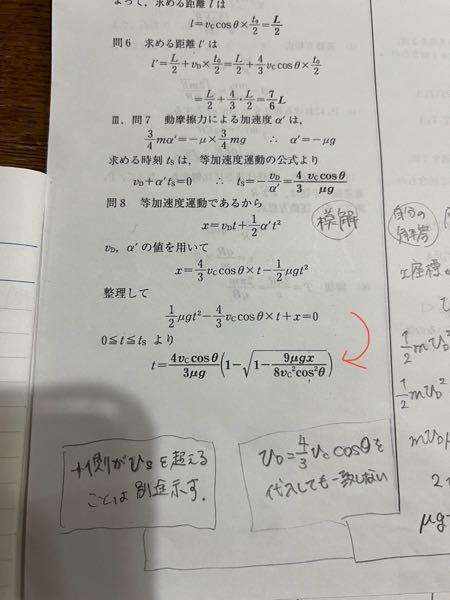 よって、求める距離 l は
l=v_C cosθ×t₀/2=L/2
問6 求める距離 l′ は
l′=L/2+v_D×t₀/2=L/2+4/3 v_C cosθ×t₀/2
=L/2+4/3・L/2=7/6 L
Ⅲ. 問7 動摩擦力による加速度 α′ は,
3/4 mα′=−μ×3/4 mg ∴ α′=−μg
求める時刻 t_S は, 等加速度運動の公式より
v_D+α′t_S=0 ∴ t_S=−v_D/α′=4/3 v_C cosθ/μg
問8 等加速度運動であるから
x=v_D t+1/2 α′t²
模解
v_D, α′ の値を用いて
x=4/3 v_C cosθ×t−1/2 μgt²
整理して
1/2 μgt²−4/3 v_C cosθ×t+x=0
0≦t≦t_S より
t=4v_C cosθ/3μg (1−√(1−9μgx/8v_C²cos²θ))
+側がt_Sを超える
ことは別途示す.
v_D=4/3 v_C cosθを
代入しても一致しない
自分の
解答
x座標
1/2 mv_D²
1/2 mv_D²
μg